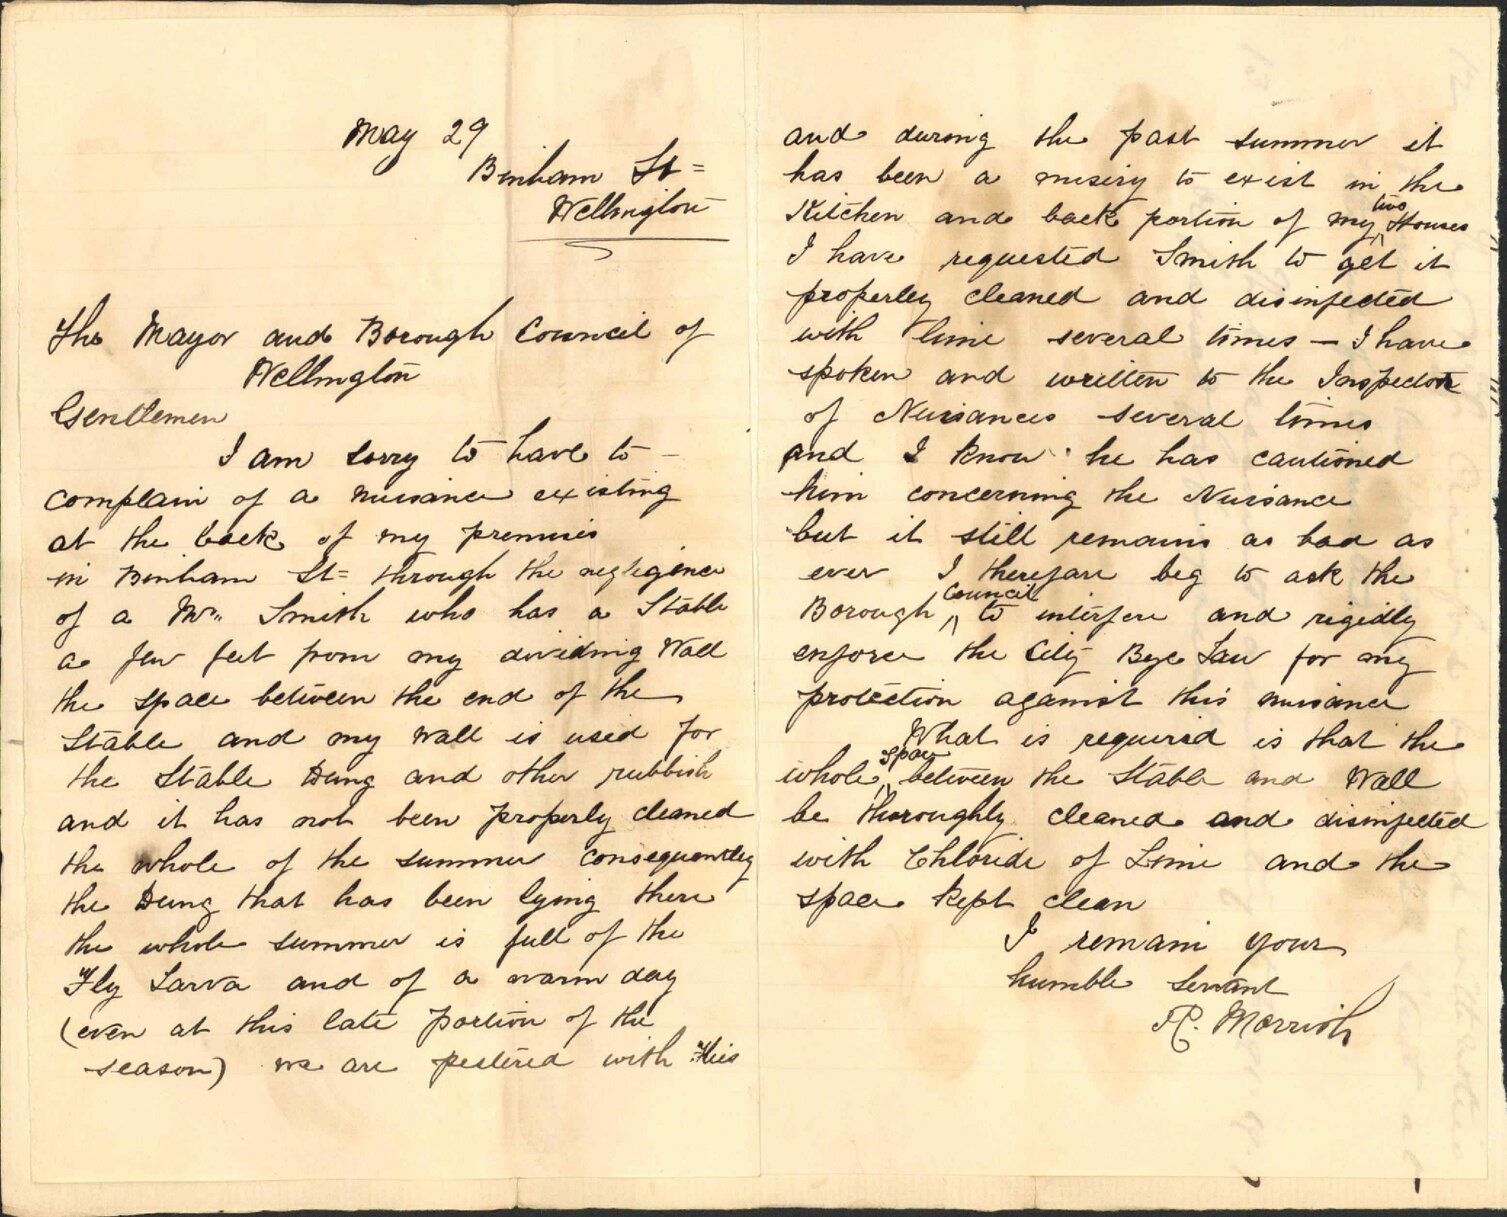 May 29
Binham St=
Wellington
The Mayor and Borough Council of
Wellington
Gentlemen
I am sorry to have to -
complain of a nuisance existing
at the back of my premises
in Binham St= through the negligence
of a Mr Smith who has a Stable
a few feet from my dividing Wall
the space between the end of the
Stable and my wall is used for
the Stable Dung and other rubbish
and it has not been properly cleaned
the whole of the summer consequently
the Dung that has been lying there
the whole summer is full of the
Fly Larva and of a warm day
(even at this late portion of the
season) we are pestered with Flies
and during the past summer it
has been a misery to exist in the
Kitchen and back portion of my two Houses
I have requested Smith to get it
properley cleaned and disinfected
with lime several times - I have
spoken and written to the Inspector
of Nuisances several times
and I know he has cautioned
him concerning the Nuisance
but it still remains as bad as
ever I therefore beg to ask the
Borough Council to interfere and rigidly
enforce the City Bye Law for my
protection against this nuisance
What is required is that the
whole space between the Stable and Wall
be thoroughly cleaned and disinfected
with Chloride of Lime and the
space kept clean
I remain your
humble servant
Morrish